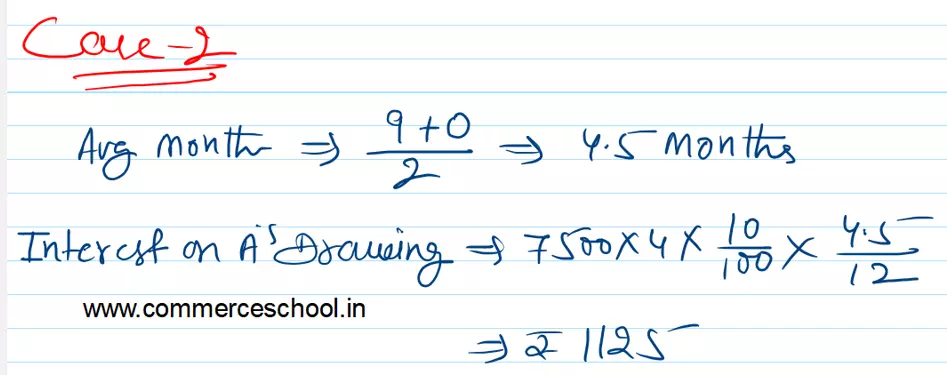 Case-2
Avg month ⇒ 9+0/2 ⇒ 4.5 months
Interest on A's Drawing ⇒ 7500×4×10/100×4.5/12
www.commerceschool.in
⇒ ₹ 1125